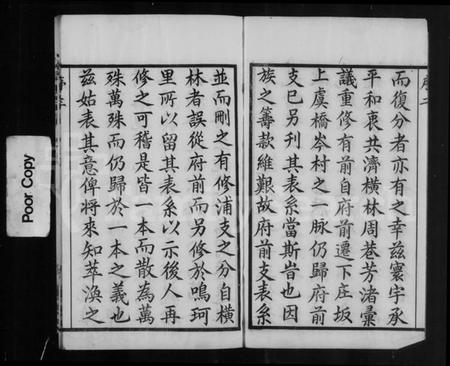 而復分者亦有之幸茲寰宇承
平和衷共濟橫林周巷芳渚彙
議重修有前自府前遷下庄坂
上虞橋岺村之一脉仍歸府前
支已另刊其表系當斯旹也因
族之籌款維艱故府前支表系
並而刪之有修浦支之分自橫
林者誤從府前而另修於鳴珂
里所以留其表系以示後人再
修之可稽是皆一本而散為萬
殊萬殊而仍歸於一本之義也
茲姑表其意俾將來知萃渙之
Poor Copy